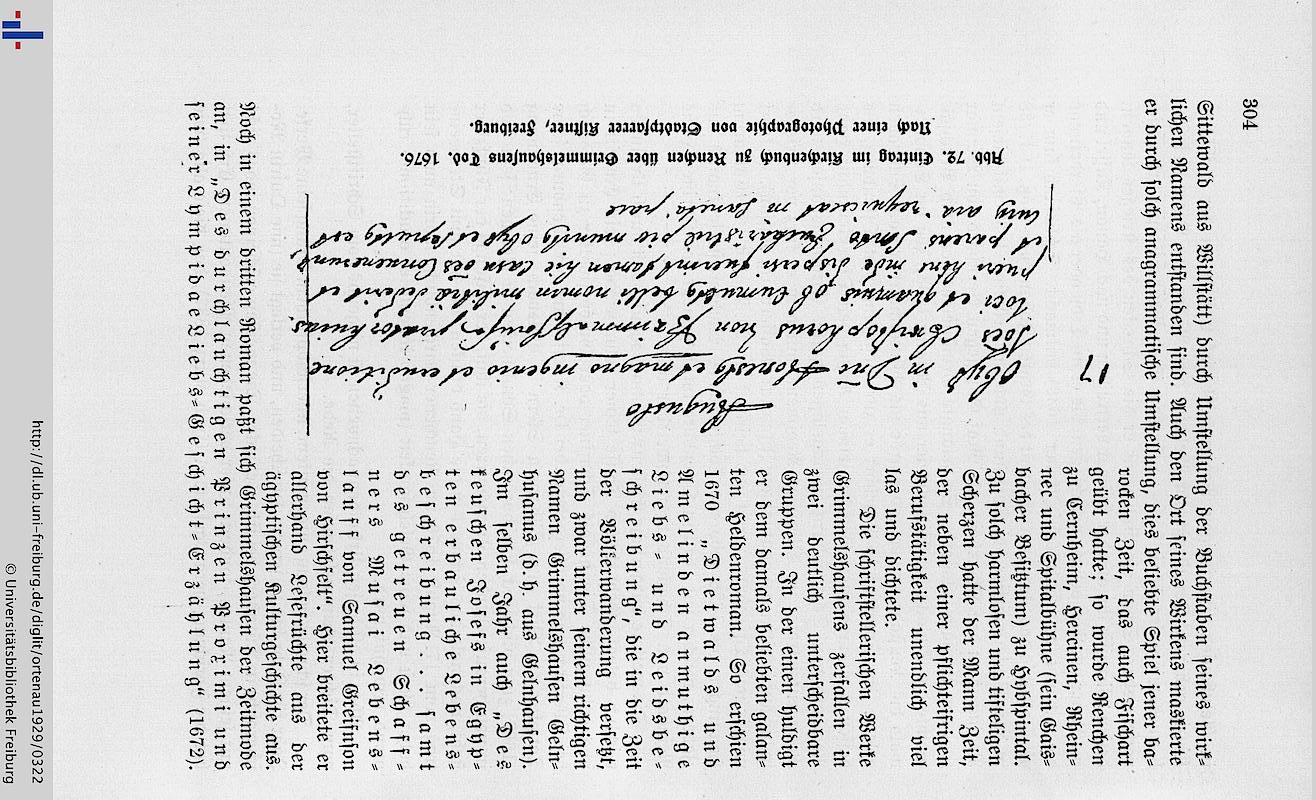 304
Sittewald aus Willstätt) durch Umstellung der Buchstaben seines wirk=
lichen Namens entstanden sind. Auch den Ort seines Wirkens maskierte
er durch solch anagrammatische Umstellung, dies beliebte Spiel jener ba=
rocken Zeit, das auch Fischart
geübt hatte; so wurde Renchen
zu Cernheim, Hercinen, Rhein=
nec und Spitalbühne (sein Gais=
bacher Besitztum) zu Hybspinthal.
Zu solch harmlosen und tifteligen
Scherzen hatte der Mann Zeit,
der neben einer pflichteifrigen
Berufstätigkeit unendlich viel
las und dichtete.
Die schriftstellerischen Werke
Grimmelshausens zerfallen in
zwei deutlich unterscheidbare
Gruppen. In der einen huldigt
er dem damals beliebten galan=
ten Heldenroman. So erschien
1670 „Dietwalds und
Amelinden anmuthige
Liebs= und Leidsbe=
schreibung“, die in die Zeit
der Völkerwanderung versetzt,
und zwar unter seinem richtigen
Namen Grimmelshausen Geln=
husanus (d. h. aus Gelnhausen).
Im selben Jahr auch „Des
keuschen Josefs in Egyp=
ten erbauliche Lebens=
beschreibung . . . samt
des getreuen Schaff=
ners Musai Lebens=
lauff von Samuel Greifnson
von Hirschfelt“. Hier breitete er
allerhand Lesefrüchte aus der
ägyptischen Kulturgeschichte aus.
Noch in einem dritten Roman paßt sich Grimmelshausen der Zeitmode
an, in „Des durchlauchtigen Prinzen Proximi und
seiner Lympidae Liebs=Geschicht=Erzählung“ (1672).
Augusto
17 Obyt in Dno Honestus et magno ingenio et eruditione
Joes Christophorus von Grimmelshausen praetor huius
loci et quamvis ob tumultus belli nomen militiae dederit et
pueri hinc inde dispersi fuerint tamen hic casu oes convenerunt,
et parens Sancto Eucharistiae pie munitus obyt et sepultus est
cuius aia requiescat in sancta pace
Abb. 72. Eintrag im Kirchenbuch zu Renchen über Grimmelshausens Tod. 1676.
Nach einer Photographie von Stadtpfarrer Kistner, Freiburg.
http://dl.ub.uni-freiburg.de/diglit/ortenau1929/0322
© Universitätsbibliothek Freiburg